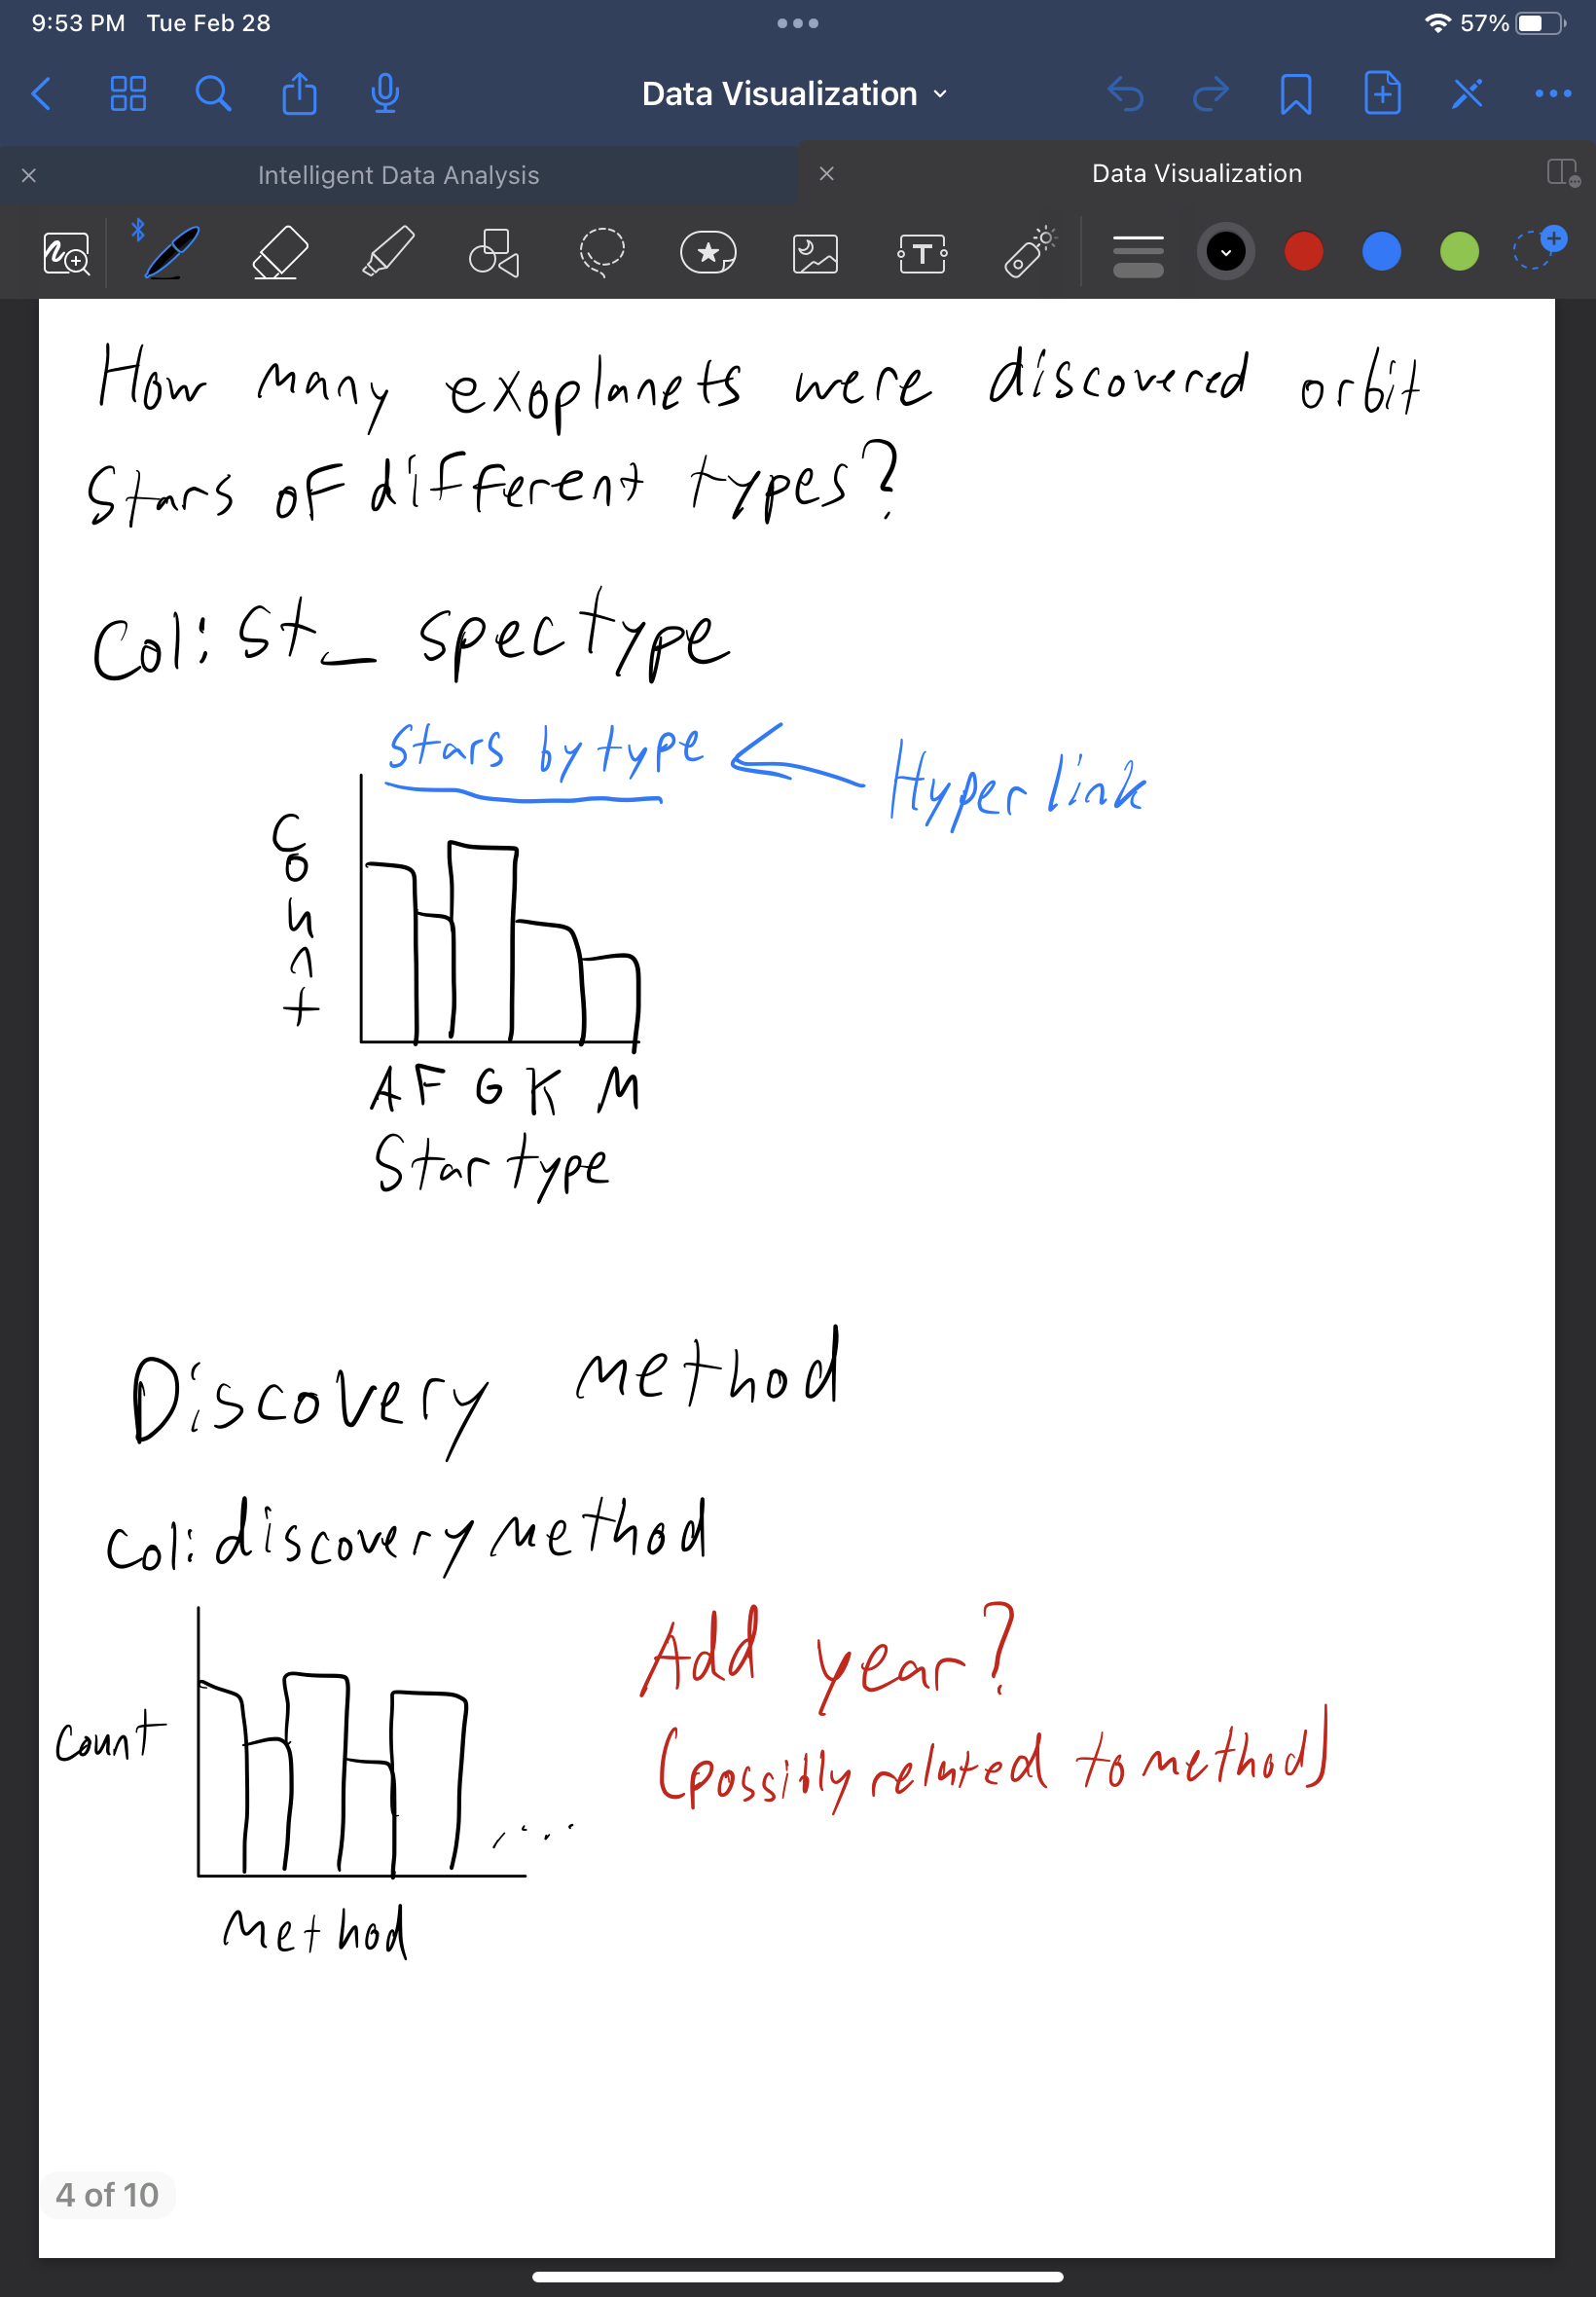 9:53 PM Tue Feb 28
57%
Data Visualization
Intelligent Data Analysis
Data Visualization
T
How many exoplanets were discovered orbit
stars of different types?
Col: st_spectype
Stars by type
Hyperlink
Count
A F G K M
Star type
Discovery method
Col: discoverymethod
Add year?
(possibly related to method)
count
Method
4 of 10